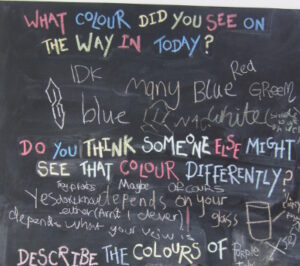 WHAT COLOUR DID YOU SEE ON
THE WAY IN TODAY?
IDK
Red
many Blue GREEN
blue
white
DO YOU THINK SOMEONE ELSE MIGHT
SEE THAT COLOUR DIFFERENTLY?
Maybe OFCOURS
Yes dontknow depends on your
either (Arnt I clever)! glass
depends what your veiw is
DESCRIBE THE COLOURS OF
Purple